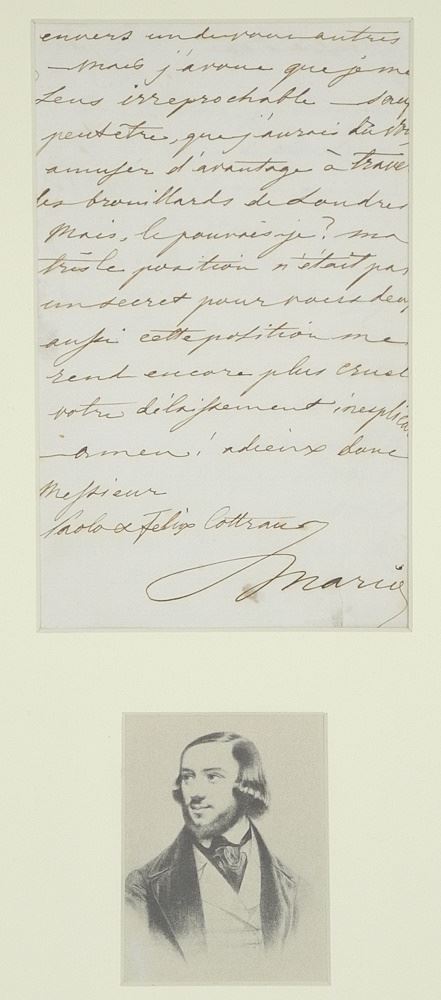 envers un de vous autres
— Mais j'avoue que je me
sens irreprochable —
peut être, que j'aurais dû
amuser d'avantage à traver
les brouillards de Londres
Mais, le pouvois-je? ma
triste position n'était pas
un secret pour vous deux
aussi cette position me
rend encore plus cruel
votre délaissement inexplica
— amen! adieux donc
Messieurs
Paolo & Félix Cottrau
Mario